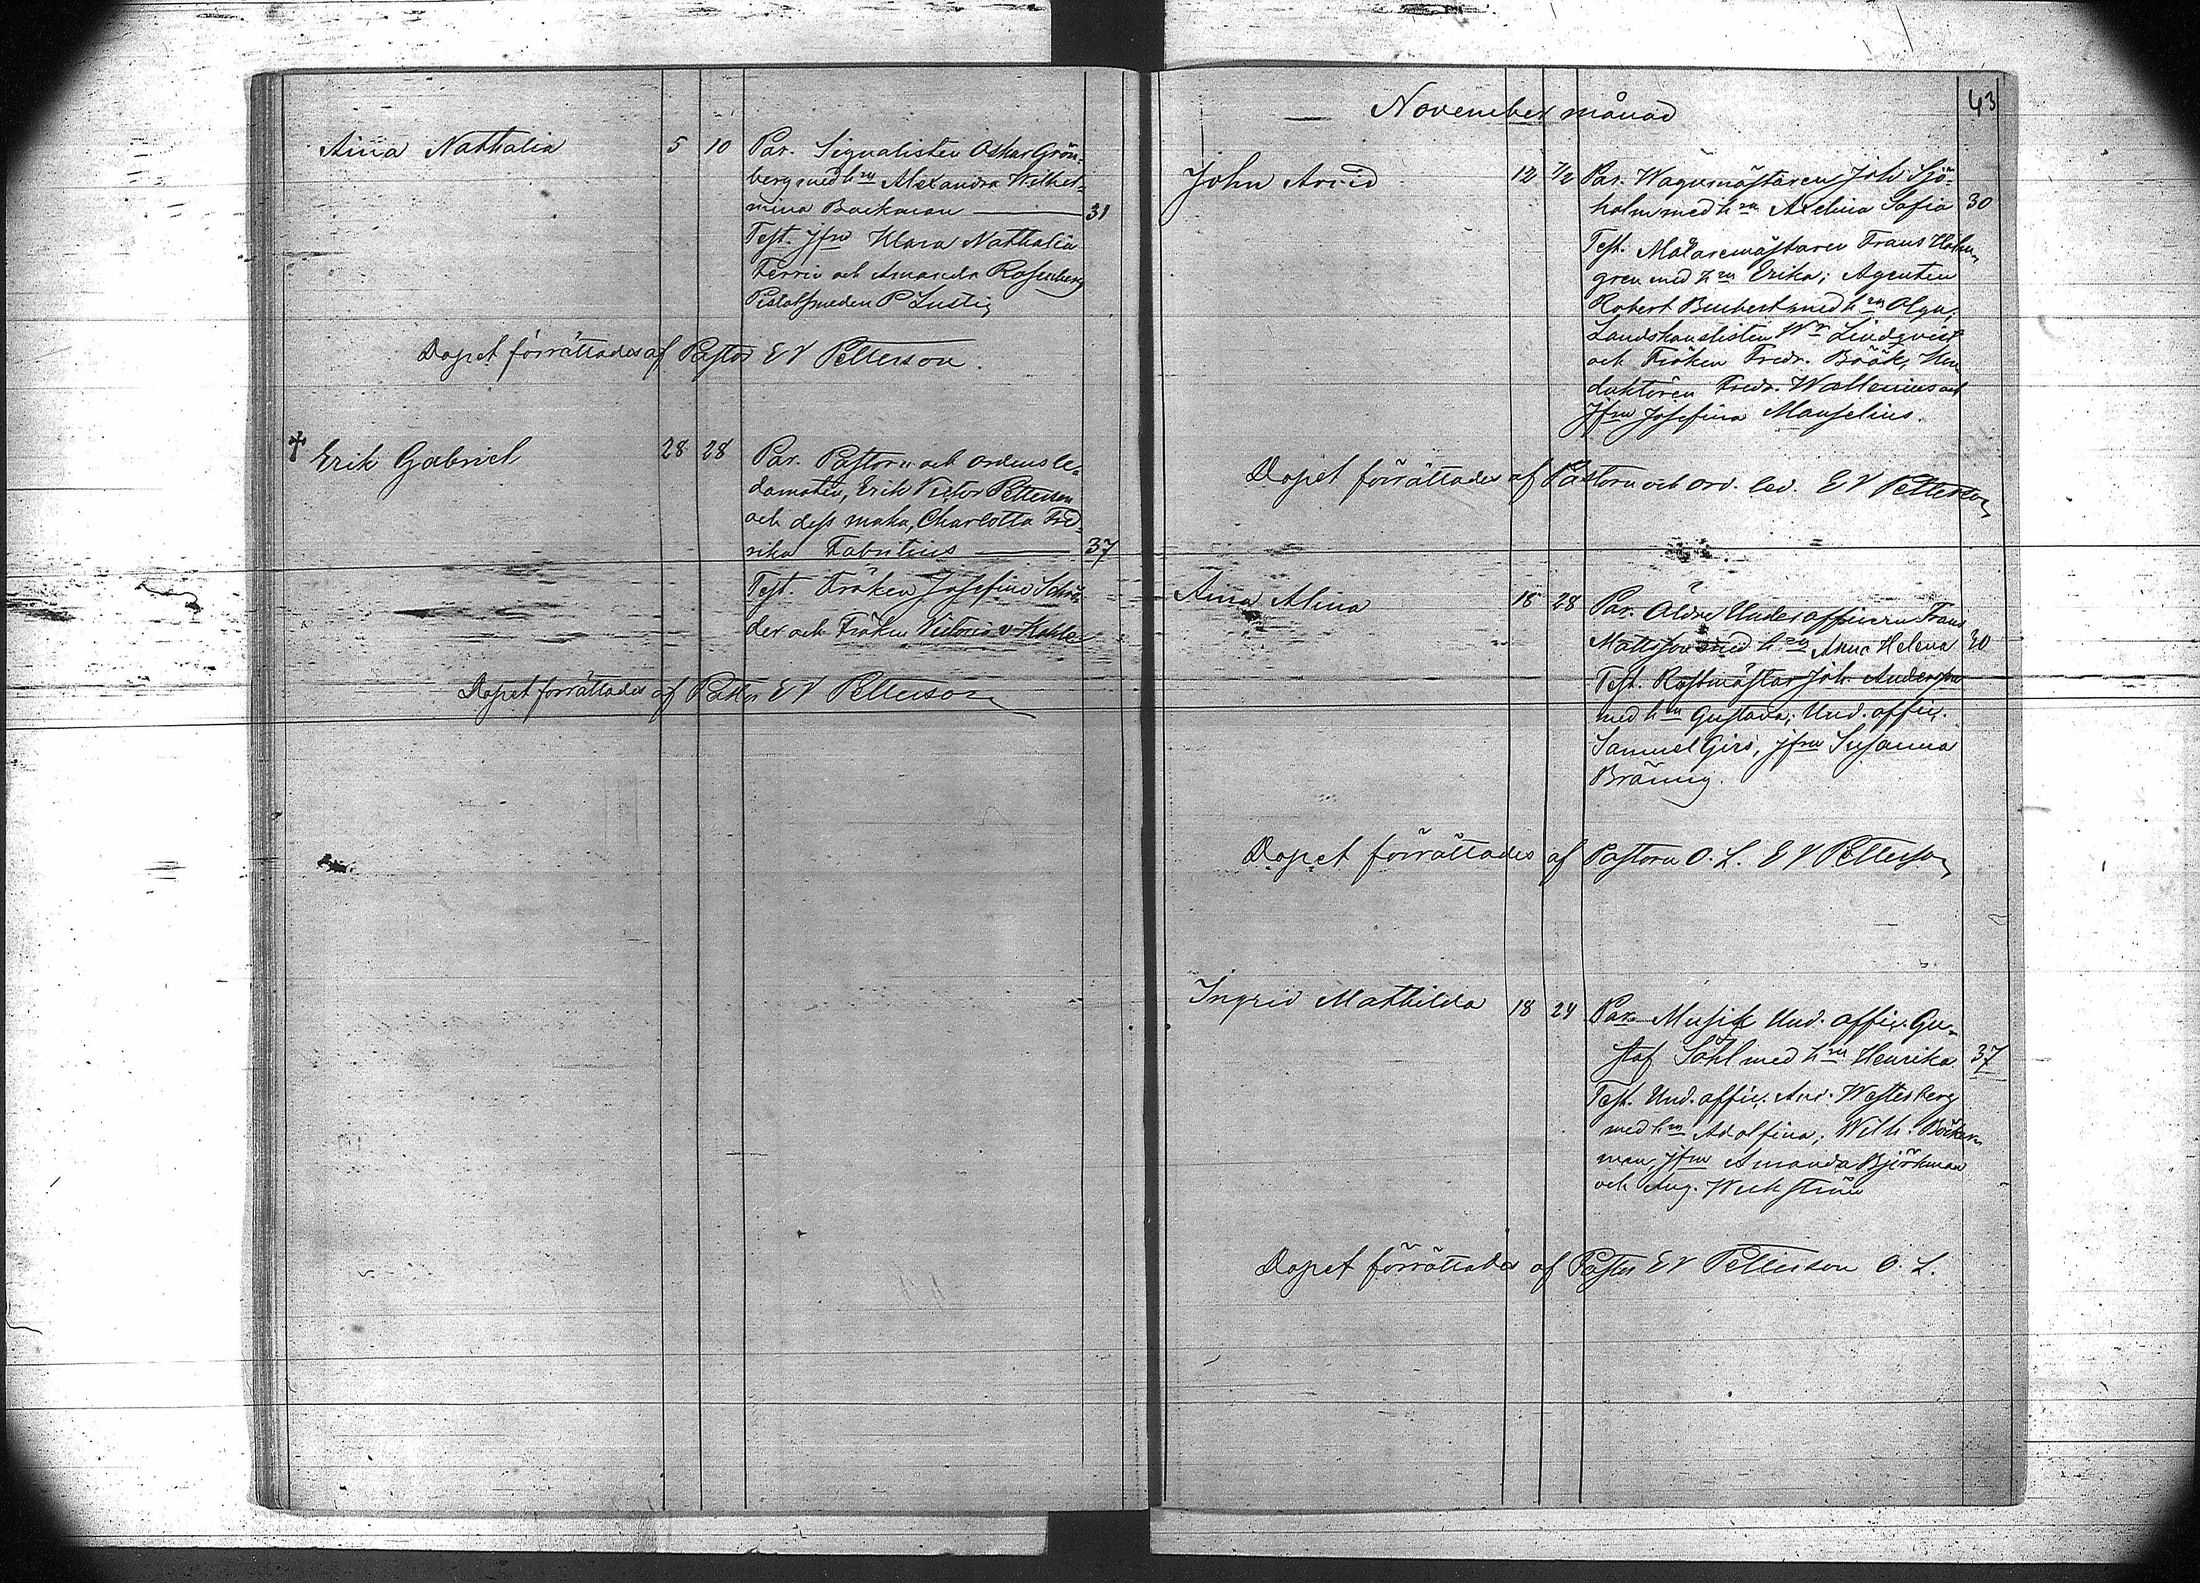 Aina Nathalia 5 10 Par. Signalisten Oskar Grön-
berg med h:ru Alexandra Wilhel-
mina Backman 31
Test. Jfru Klara Nathalia
Ferrin och Amanda Rosenberg
P Lustig
Dopet förrättades af Pastor E V Petterson.
† Erik Gabriel 28 28 Par. Pastorn och ordensle-
damoten, Erik Victor Petterson
och dess maka, Charlotta Fred-
rika Fabritius 37
Test. Fröken Josefine Schrö-
der och Fröken Victoria v. Kohle
Dopet förrättades af Pastor E V Petterson
43
November månad
John Arvid 12 7/12 Par. Wagnmästaren Joh Sjö-
holm med h:ru Adelina Sofia 30
Test. Målaremästaren Frans Holm-
gren med h:ru Erika; Agenten
Robert med h:ru Olga;
Landskanslisten W:m Lindqvist
och Fröken Fredr. Böök, Kon
duktören Fredr. Wallenius och
Jfru Josefina Manselius.
Dopet förrättades af Pastorn och ord. led. E V Petterson
Aina Alina 18 28 Par. Äldre Underofficern Frans
Mattsson med h:ru Anna Helena 30
Test. Rostmästar Joh. Andersson
med h:ru Gustava; Und. offic.
Samuel Girs, Jfru Susanna
Bränny.
Dopet förrättades af Pastorn O. L. E V Petterson
Ingrid Mathilda 18 24 Par. Musik Und. offic. Gu-
staf Sohl med h:ru Henrika 37
Test. Und. offic. And. Westerberg
med h:ru Adolfina; Wilh. Böck-
man, Jfru Amanda Björkman
och Aug. Weckström
Dopet förrättades af Pastor E V Petterson O. L.